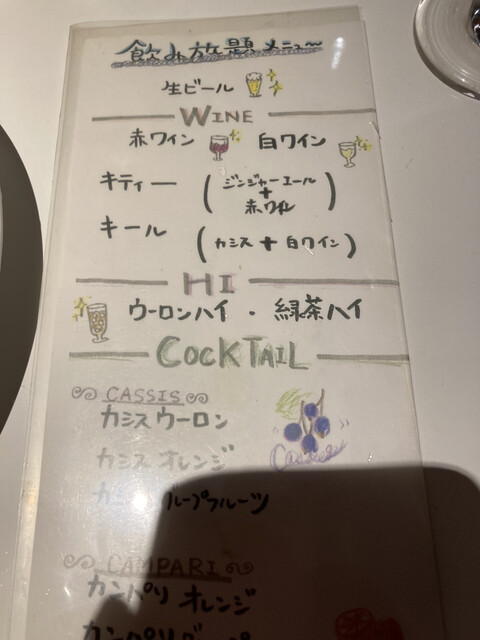 飲み放題メニュ〜
生ビール
WINE
赤ワイン 白ワイン
キティー (ジンジャーエール + 赤ワイン)
キール (カシス + 白ワイン)
HI
ウーロンハイ ・ 緑茶ハイ
COCKTAIL
CASSIS
カシスウーロン
カシスオレンジ
Cassis
CAMPARI
カンパリ オレンジ